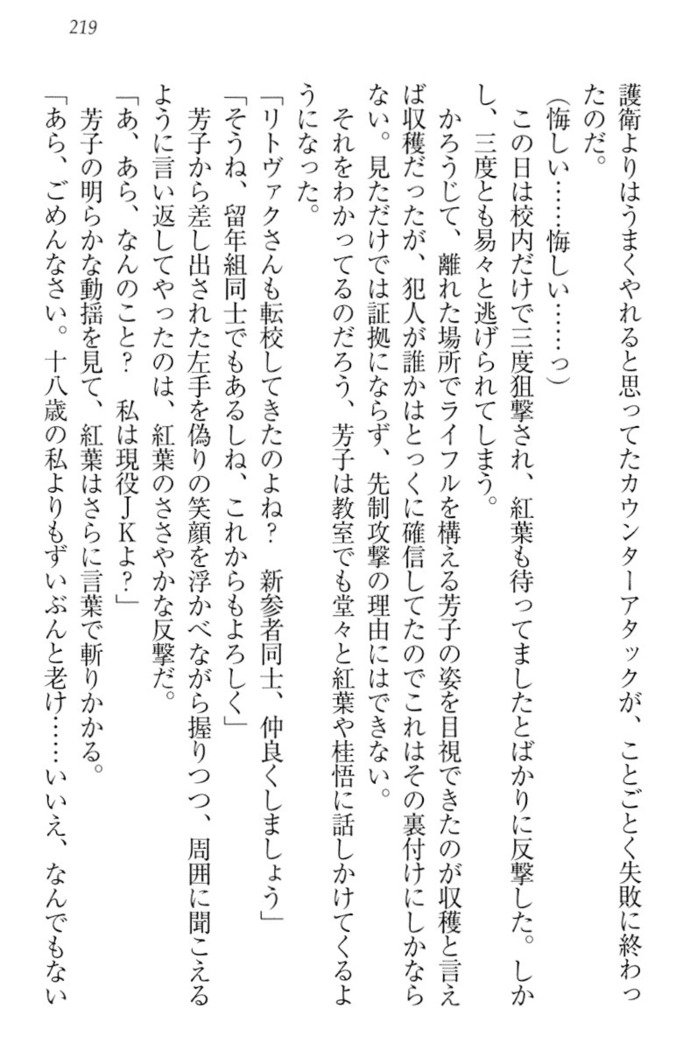 219
護衛よりはうまくやれると思ってたカウンターアタックが、ことごとく失敗に終わっ
たのだ。
(悔しい……悔しい……っ)
この日は校内だけで三度狙撃され、紅葉も待ってましたとばかりに反撃した。しか
し、三度とも易々と逃げられてしまう。
かろうじて、離れた場所でライフルを構える芳子の姿を目視できたのが収穫と言え
ば収穫だったが、犯人が誰かはとっくに確信してたのでこれはその裏付けにしかなら
ない。見ただけでは証拠にならず、先制攻撃の理由にはできない。
それをわかってるのだろう、芳子は教室でも堂々と紅葉や桂悟に話しかけてくるよ
うになった。
「リトヴァクさんも転校してきたのよね？　新参者同士、仲良くしましょう」
「そうね、留年組同士でもあるしね、これからもよろしく」
芳子から差し出された左手を偽りの笑顔を浮かべながら握りつつ、周囲に聞こえる
ように言い返してやったのは、紅葉のささやかな反撃だ。
「あ、あら、なんのこと？　私は現役ＪＫよ？」
芳子の明らかな動揺を見て、紅葉はさらに言葉で斬りかかる。
「あら、ごめんなさい。十八歳の私よりもずいぶんと老け……いいえ、なんでもない